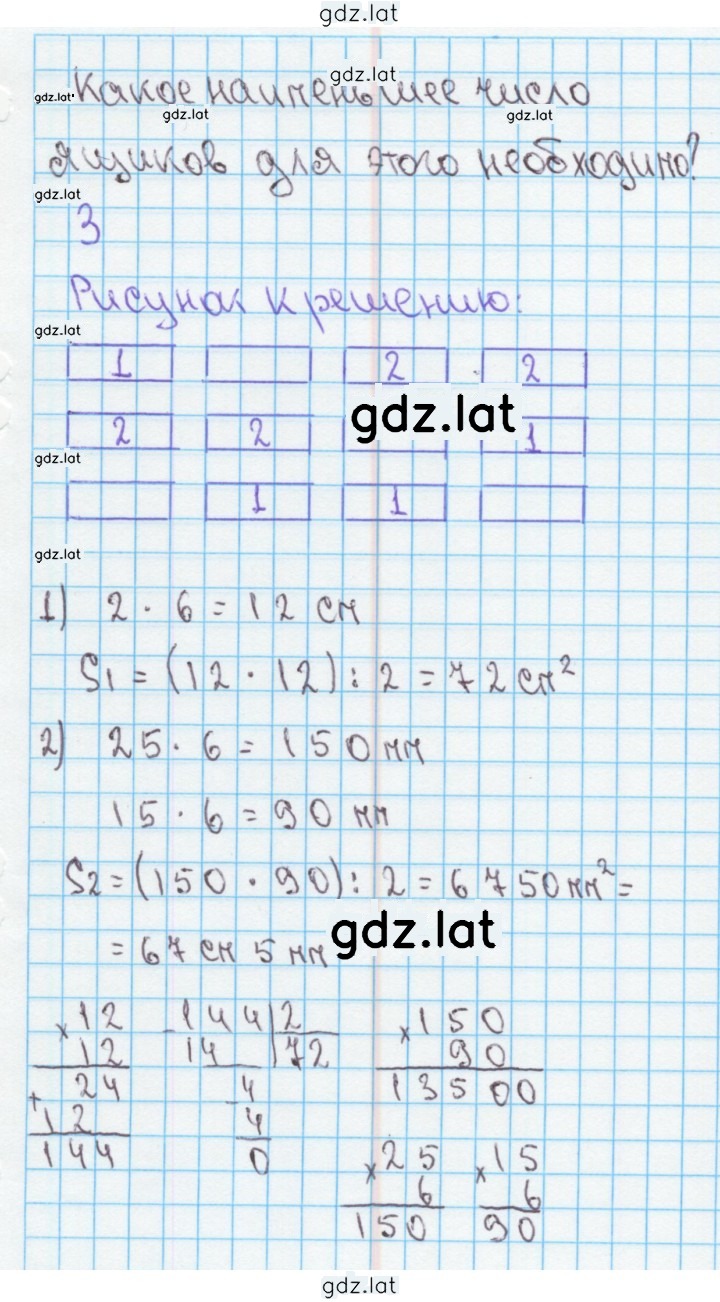 gdz.lat
gdz.lat
gdz.lat Какое наименьшее число
gdz.lat gdz.lat
ящиков для этого необходимо?
gdz.lat
3
Рисунок к решению:
gdz.lat
1 2 2
gdz.lat
2 2 1
gdz.lat
1 1
gdz.lat
1) 2 · 6 = 12 см
S1 = (12 · 12) : 2 = 72 см²
2) 25 · 6 = 150 мм
15 · 6 = 90 мм
S2 = (150 · 90) : 2 = 6750 мм² =
= 67 см 5 мм gdz.lat
× 12 - 144 | 2 × 150
12 14 | 72 90
24 4 13500
+ 12 - 4
144 0 × 25 × 15
6 6
150 90
gdz.lat